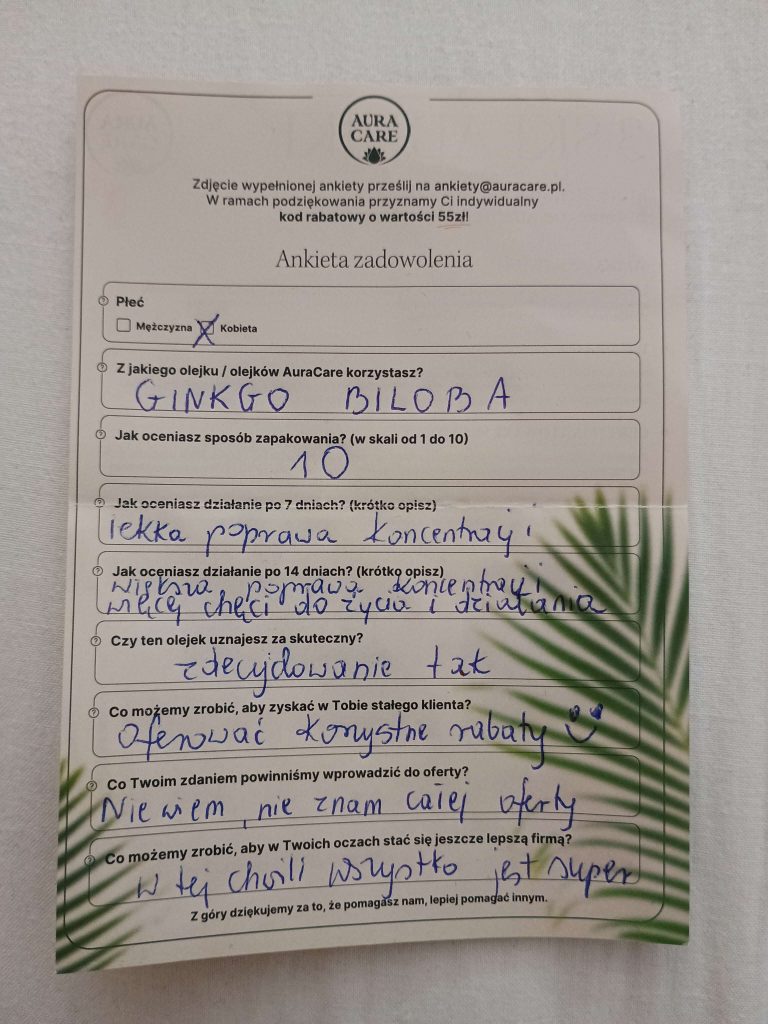 AURA
CARE
Zdjęcie wypełnionej ankiety prześlij na ankiety@auracare.pl.
W ramach podziękowania przyznamy Ci indywidualny
kod rabatowy o wartości 55zł!
Ankieta zadowolenia
Płeć
Mężczyzna Kobieta
Z jakiego olejku / olejków AuraCare korzystasz?
GINKGO BILOBA
Jak oceniasz sposób zapakowania? (w skali od 1 do 10)
10
Jak oceniasz działanie po 7 dniach? (krótko opisz)
lekka poprawa koncentracji
Jak oceniasz działanie po 14 dniach? (krótko opisz)
większa poprawa koncentracji
więcej chęci do życia i działania
Czy ten olejek uznajesz za skuteczny?
zdecydowanie tak
Co możemy zrobić, aby zyskać w Tobie stałego klienta?
Oferować korzystne rabaty
Co Twoim zdaniem powinniśmy wprowadzić do oferty?
Nie wiem, nie znam całej oferty
Co możemy zrobić, aby w Twoich oczach stać się jeszcze lepszą firmą?
W tej chwili wszystko jest super
Z góry dziękujemy za to, że pomagasz nam, lepiej pomagać innym.